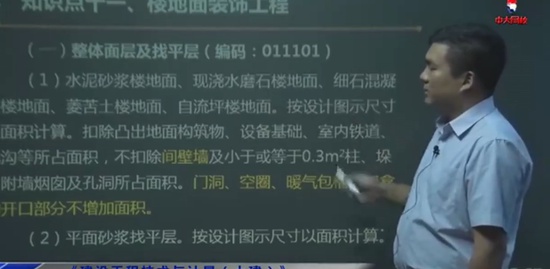 知识点十一、楼地面装饰工程
中大网校
(一)整体面层及找平层(编码:011101)
(1)水泥砂浆楼地面、现浇水磨石楼地面、细石混凝
楼地面、菱苦土楼地面、自流坪楼地面。按设计图示尺寸
面积计算。扣除凸出地面构筑物、设备基础、室内铁道、
沟等所占面积,不扣除间壁墙及小于或等于0.3m²柱、垛
附墙烟囱及孔洞所占面积。门洞、空圈、暖气包
开口部分不增加面积。
(2)平面砂浆找平层。按设计图示尺寸以面积计算。
《建设工程技术与计量(土建)》